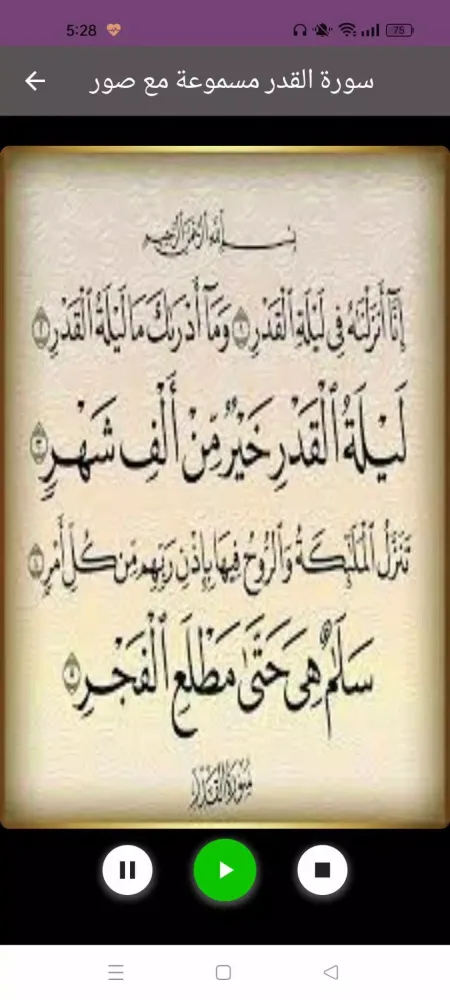 5:28
75
سورة القدر مسموعة مع صور
بسم الله الرحمن الرحيم
إِنَّآ أَنزَلْنَٰهُ فِى لَيْلَةِ ٱلْقَدْرِ ١ وَمَآ أَدْرَىٰكَ مَا لَيْلَةُ ٱلْقَدْرِ ٢
لَيْلَةُ ٱلْقَدْرِ خَيْرٌ مِّنْ أَلْفِ شَهْرٍ ٣
تَنَزَّلُ ٱلْمَلَٰٓئِكَةُ وَٱلرُّوحُ فِيهَا بِإِذْنِ رَبِّهِم مِّن كُلِّ أَمْرٍ ٤
سَلَٰمٌ هِىَ حَتَّىٰ مَطْلَعِ ٱلْفَجْرِ ٥
سُورَةُ القَدْرِ